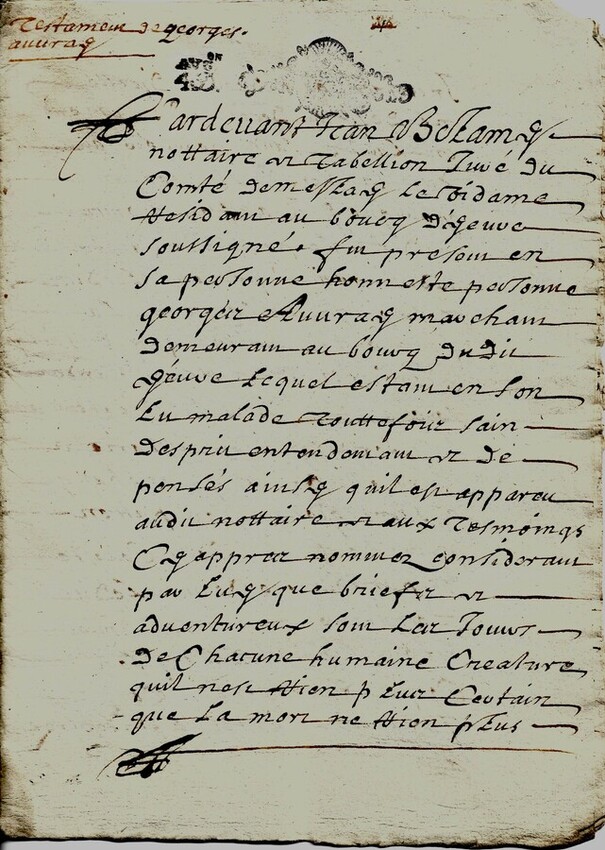 Testament de georges
auvray
Pardevant Jean Belamy
nottaire et Tabellion Juré du
Comté de meslay le vidame
Residant au bourg d'yeuve
soussigné fut present en
sa personne honneste personne
georges Auvray marchant
demeurant au bourg dudit
yeuve Lequel estant en son
Lit malade touttefois sain
desprit entendement et de
pensés ainsy quil est appareu
audit nottaire et aux tesmoings
Cy apprez nommez considerant
par Luy que briefz et
adventureux sont Les Jours
de Chacune humaine Creature
quil nest Rien plus Certain
que La mort ne Rien plus